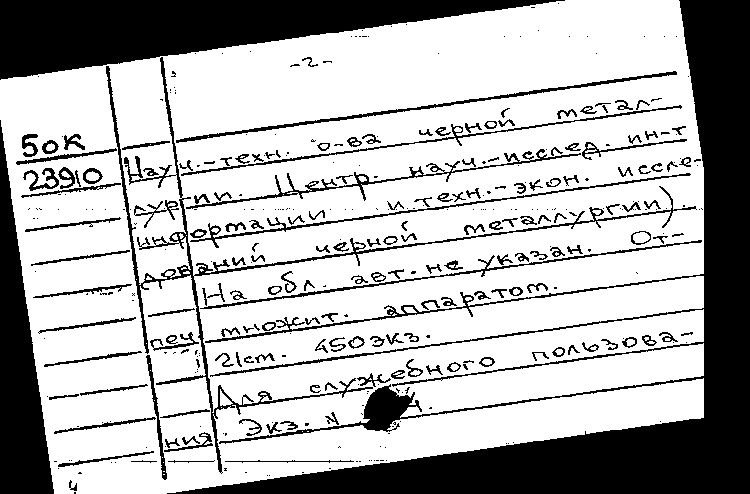 -2-
50К
23910
Науч.-техн. о-ва черной метал-
лургии. Центр. науч.-исслед. ин-т
информации и техн.-экон. иссле-
дований черной металлургии).-
На обл. авт. не указан. От-
печ. множит. аппаратом.
21ст. 450экз.
Для служебного пользова-
ния. Экз. N
4